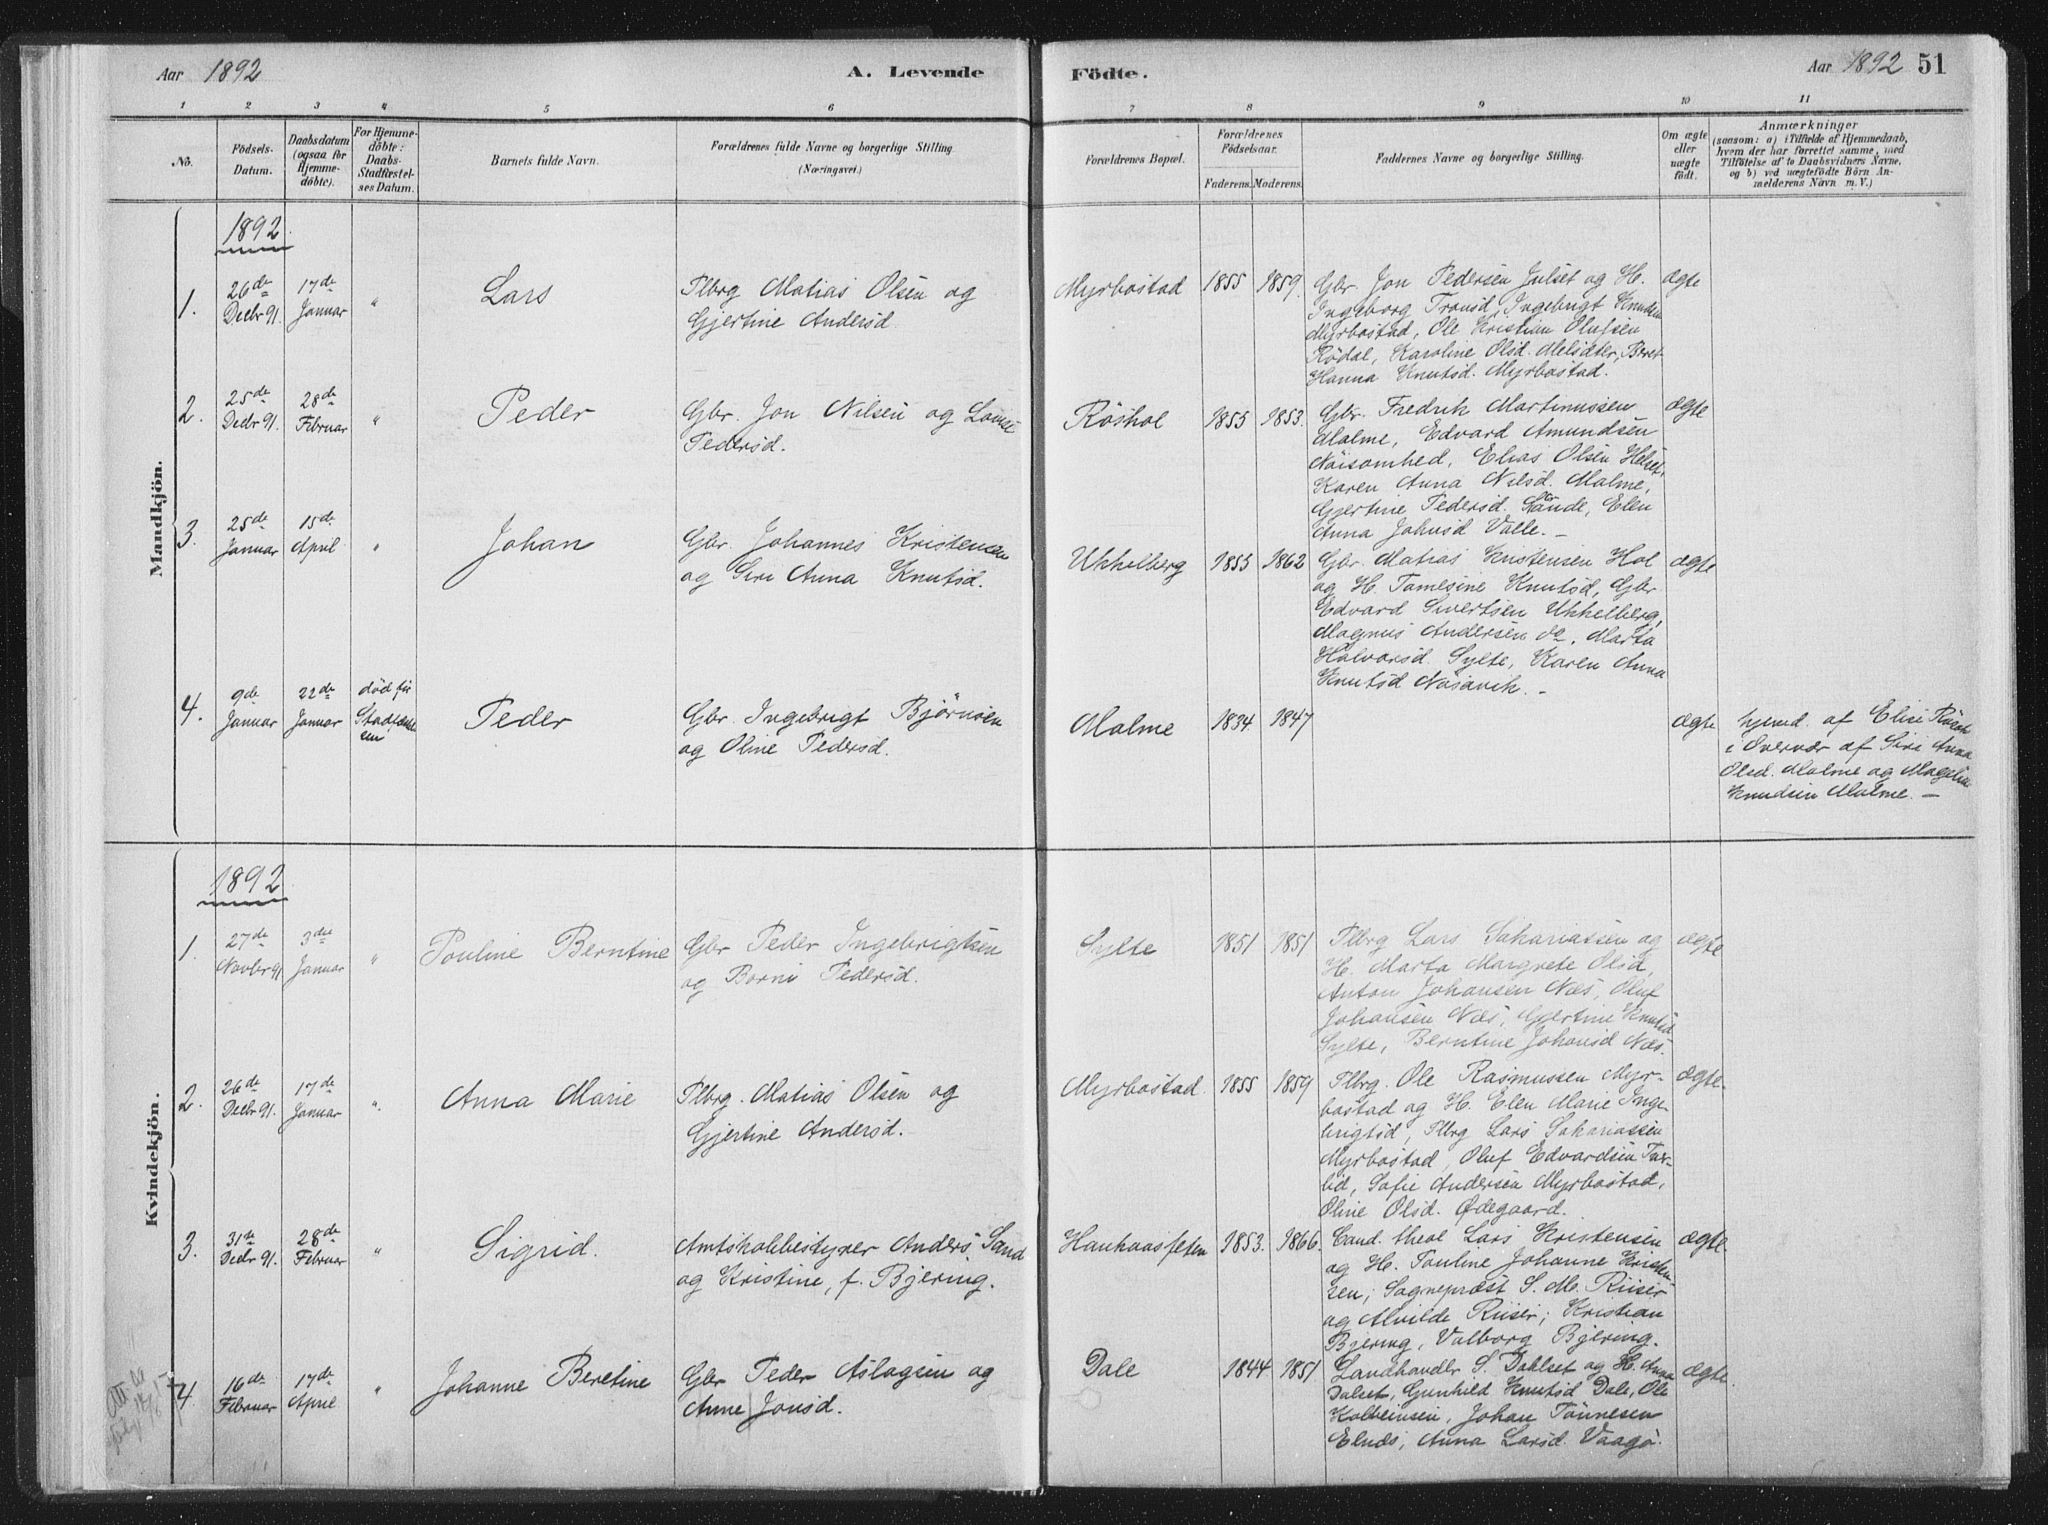 Aar 1892
A. Levende
Födte.
Aar 1892 51
1 2 3 4 5 6 7 8 9 10 11
No.
Födsels-
Datum.
Daabsdatum
(ogsaa for
Hjemme-
döbte).
For Hjemme-
döbte:
Daabs-
Stadfæstel-
ses Datum.
Barnets fulde Navn.
Forældrenes fulde Navne og borgerlige Stilling
(Næringsvei.)
Forældrenes Bopæl.
Forældrenes
Födselsaar.
Faderens. Moderens.
Faddernes Navne og borgerlige Stilling.
Om ægte
eller
uægte
födt.
Anmærkninger
(saasom: a) i Tilfælde af Hjemmedaab,
hvem der har forrettet samme, med
Tilföielse af to Daabsvidners Navne,
og b) ved uægtefödte Börn An-
melderens Navn m. V.)
Mandkjön.
1892
1.
26de
Decbr 91.
17de
Januar
"
Lars
Plbrg Matias Olsen og
Gjertine Andersd.
Myrbostad
1855
1859.
Gbr. Jon Pedersen Julset og H.
Ingeborg Tronsd, Ingebrigt Knudsen
Myrbostad, Ole Kristian Olufsen
Rödal, Karoline Olsd. Melsäter, Beret
Hanna Knutsd. Myrbostad.
ægte
2.
25de
Decbr 91.
28de
Februar
"
Peder
Gbr. Jon Nilsen og Louise
Pedersd.
Röshol
1855
1853.
Gbr. Fredrik Martinussen
Malme, Edvard Amundsen
Nöisomhed, Elias Olsen Helset,
Karen Anna Nilsd. Malme,
Gjertine Pedersd. Sande, Elen
Anna Johnsd Valle. —
ægte
3.
25de
Januar
15de
April
"
Johan
Gbr. Johannes Kristensen
og Siri Anna Knutsd.
Ukkelberg
1855
1862
Gbr. Matias Kristensen Hol
og H. Tamesine Knutsd, Gbr
Edvard Sivertsen Ukkelberg,
Magnus Andersen do, Marta
Halvorsd. Sylte, Karen Anna
Knutsd Näsavik. —
ægte
4.
9de
Januar
22de
Januar
död för
Stadfæstels
en
Peder
Gbr. Ingebrigt Björnsen
og Oline Pedersd.
Malme
1834.
1847
ægte
hjemd. af Elise
i Overvær af Siri Anna
Olsd. Malme og
Knudsen Malme. —
Kvindekjön.
1892
1.
27de
Novbr 91
3die
Januar
"
Pouline Berntine
Gbr Peder Ingebrigtsen
og Borni Pedersd.
Sylte
1851
1851
Plbrg Lars Sakariassen og
H. Marta Margrete Olsd,
Anton Johansen Næs, Oluf
Johansen Næs, Gjertine Knutsd
Sylte, Berntine Johansd Næs.
ægte
2.
26de
Decbr 91.
17de
Januar
".
Anna Marie
Plbrg. Matias Olsen og
Gjertine Andersd.
Myrbostad.
1855
1859
Plbrg. Ole Rasmussen Myr-
bostad og H. Elen Marie Inge-
brigtsd, Plbrg Lars Sakariassen
Myrbostad, Oluf Edvardsen Tar-
lid, Sofie Andersen Myrbostad,
Oline Olsd. Ødegaard.
ægte.
3.
31te
Decbr 91.
28de
Februar
"
Sigrid.
Amtskolebestyrer Anders Sand
og Kristine, f. Bjering.
Haukaasfeten
1853.
1866.
Cand. theol Lars Kristensen
og H. Pauline Johanne Kristen-
sen; Sogneprest S. M. Riiser
og Alvilde Riiser; Kristian
Bjering, Valborg Bjering.
ægte.
4.
16de
Februar
17de
April
"
Johanne Beretine
Gbr Peder Aslagsen og
Anne Jonsd.
Dale
1844
1851
Landhandlr S. Dahlset og H. Anna
Dalset, Gunhild Knutsd Dale, Ole
Kolbeinsen, Johan Tönnesen
Elnæs, Anna Larsd. Vaagö.
ægte.